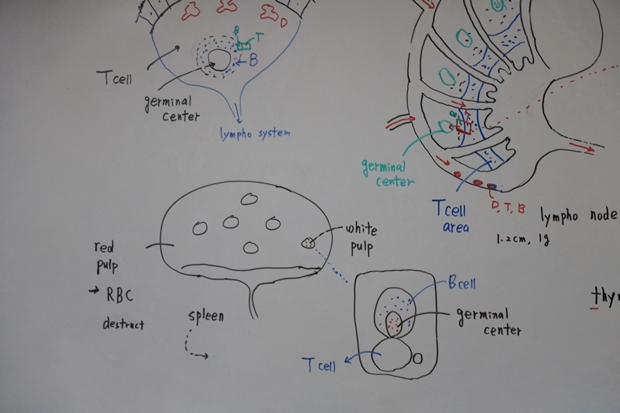 D
P
T
B
T cell
germinal
center
lympho system
germinal
center
T cell
area
D, T, B
lympho node
1.2cm, 1g
white
pulp
red
pulp
→ RBC
destruct
spleen
B cell
germinal
center
T cell
thy